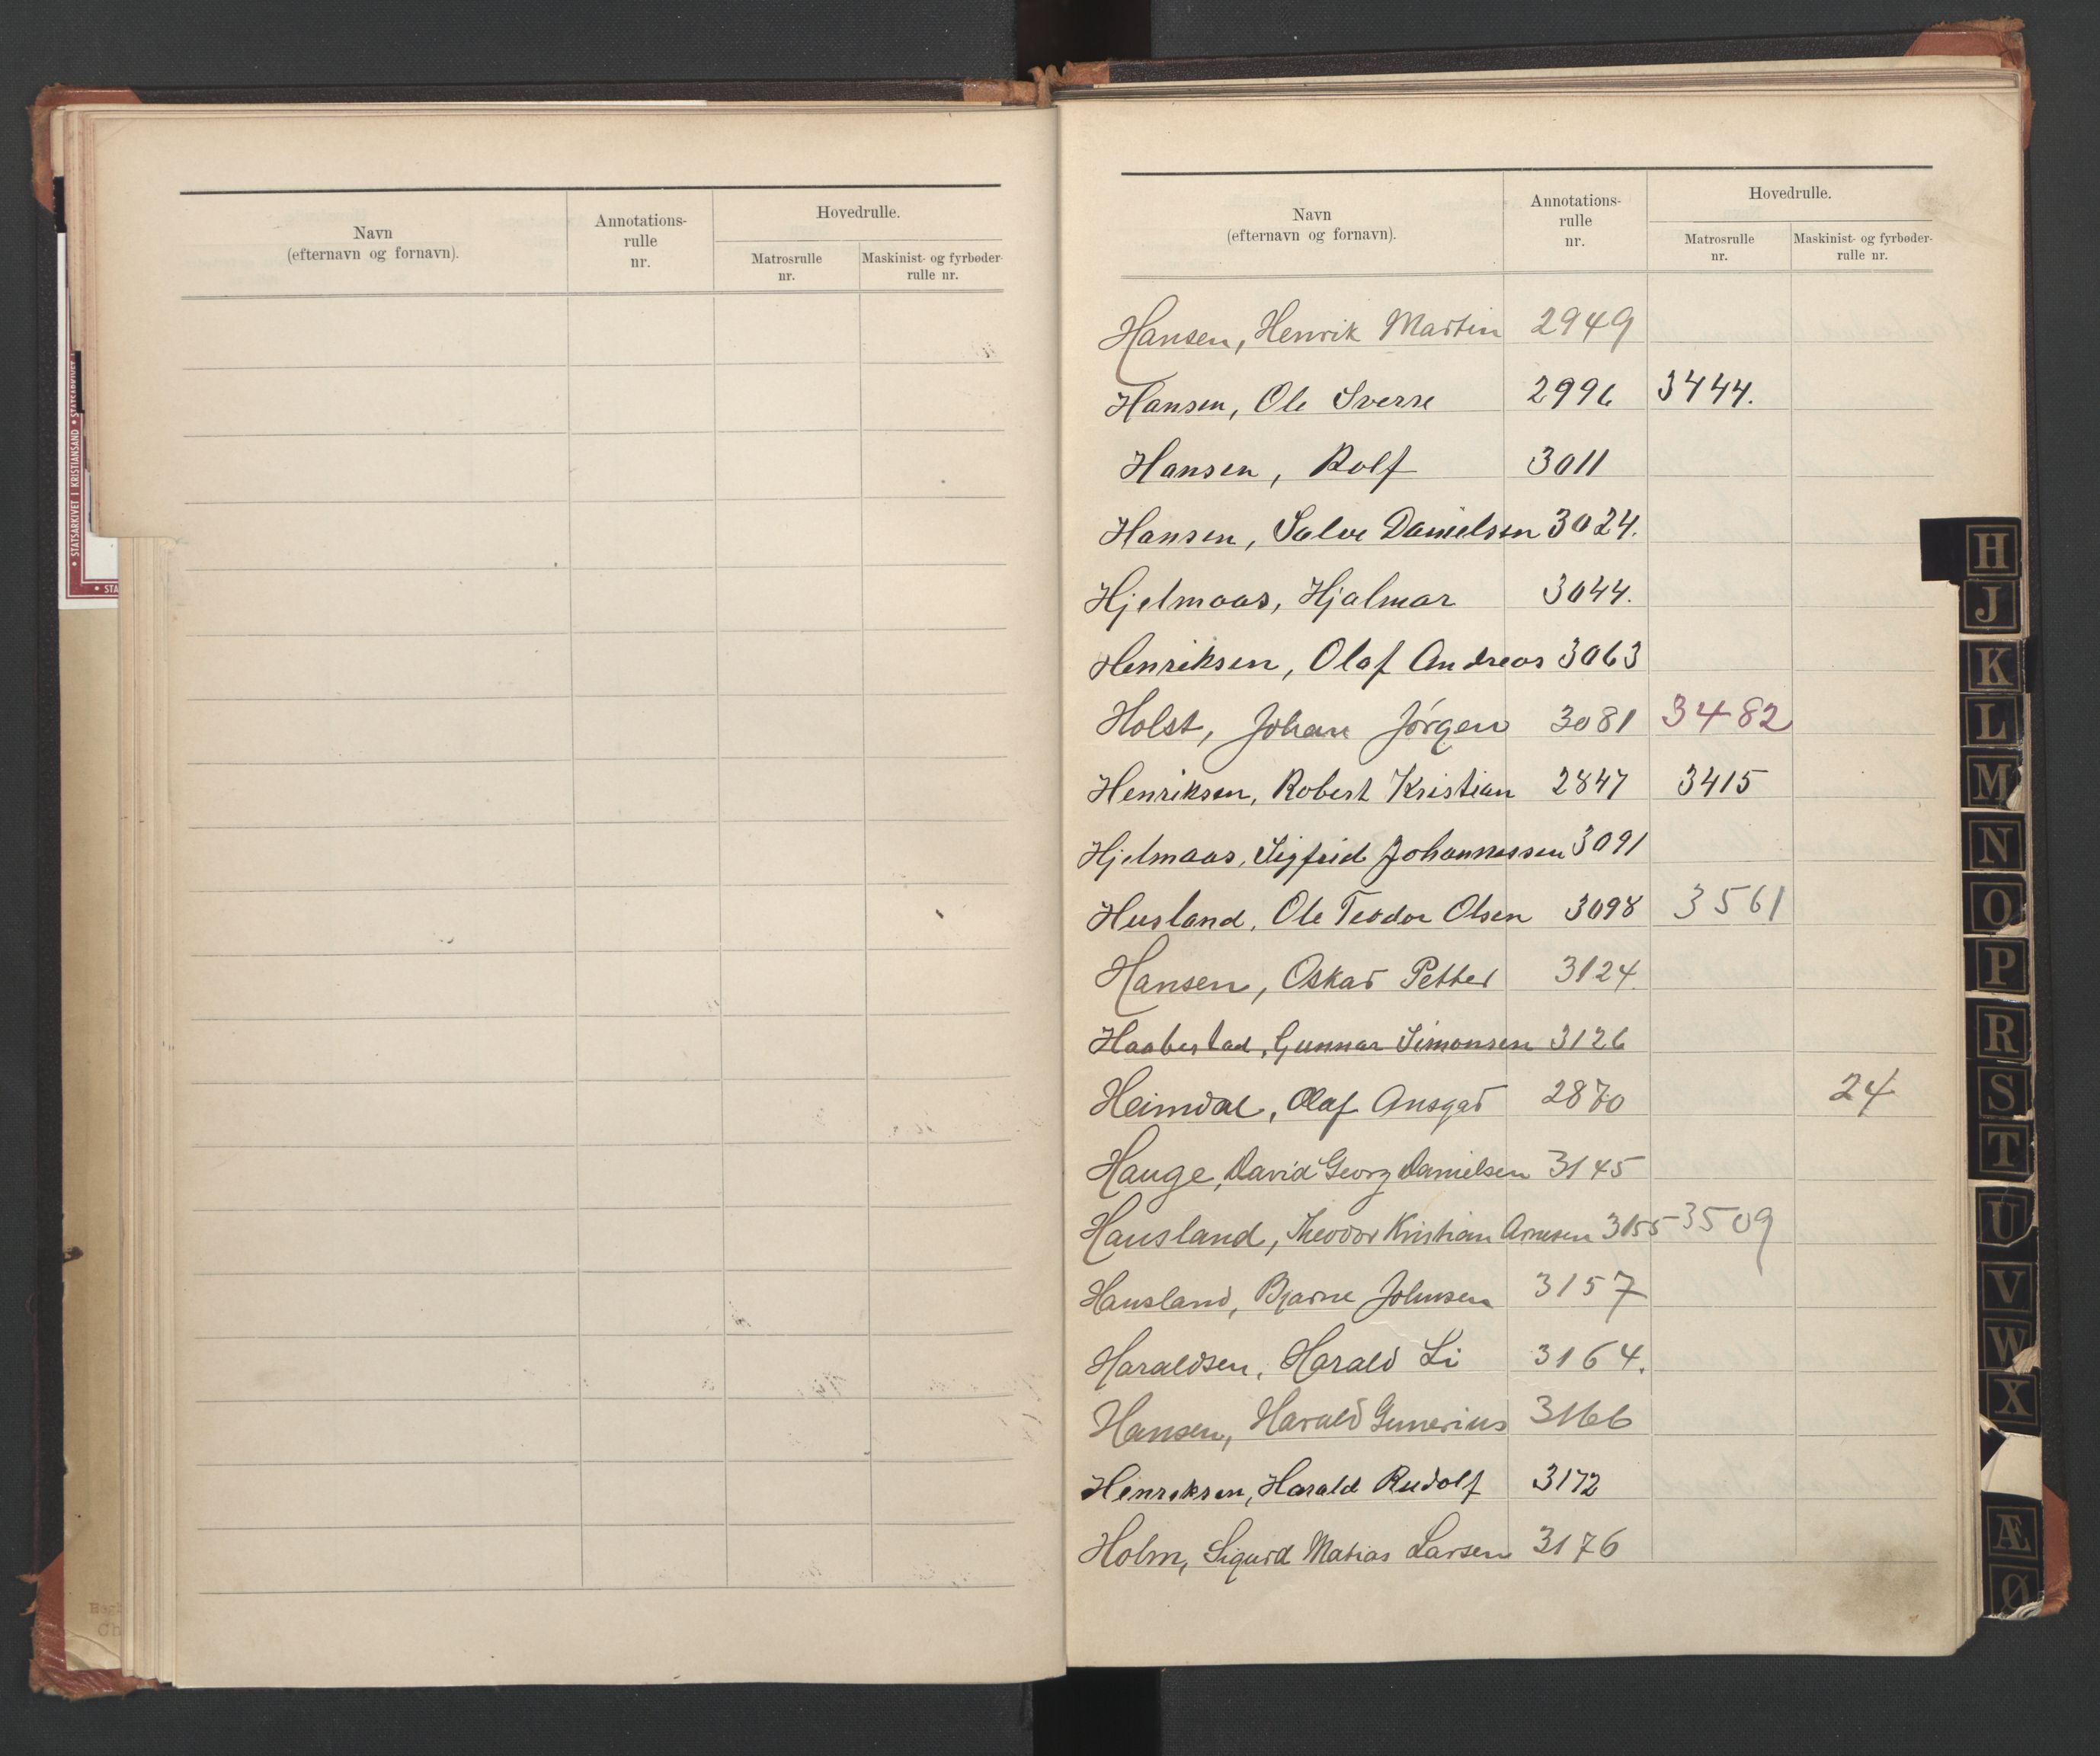 Navn
(efternavn og fornavn).
Annotations-
rulle
nr.
Hovedrulle.
Matrosrulle
nr.
Maskinist- og fyrbøder-
rulle nr.
• STATSARKIVET I KRISTIANSAND •
Navn
(efternavn og fornavn).
Annotations-
rulle
nr.
Hovedrulle.
Matrosrulle
nr.
Maskinist- og fyrbøder-
rulle nr.
Hansen, Henrik Martin 2949
Hansen, Ole Sverre 2996 3444.
Hansen, Rolf 3011
Hansen, Salve Danielsen 3024.
Hjelmaas, Hjalmar 3044.
Henriksen, Olaf Andreas 3063
Holst, Johan Jörgen 3081 3482
Henriksen, Robert Kristian 2847 3415
Hjelmaas, Sigfrid Johannessen 3091
Husland, Ole Teodor Olsen 3098 3561
Hansen, Oskar Petter 3124.
Haabestad, Gunnar Simonsen 3126
Heimdal, Olaf Ansgar 2870 24
Hauge, David Georg Danielsen 3145
Hausland, Theodor Kristian Arnesen 3155 3509
Hausland, Bjarne Johnsen 3157
Haraldsen, Harald Li 3164.
Hansen, Harald Gunerius 3166
Henriksen, Harald Rudolf 3172
Holm, Sigurd Matias Larsen 3176
H
J
K
L
M
N
O
P
R
S
T
U
V
W
X
Æ
Ø